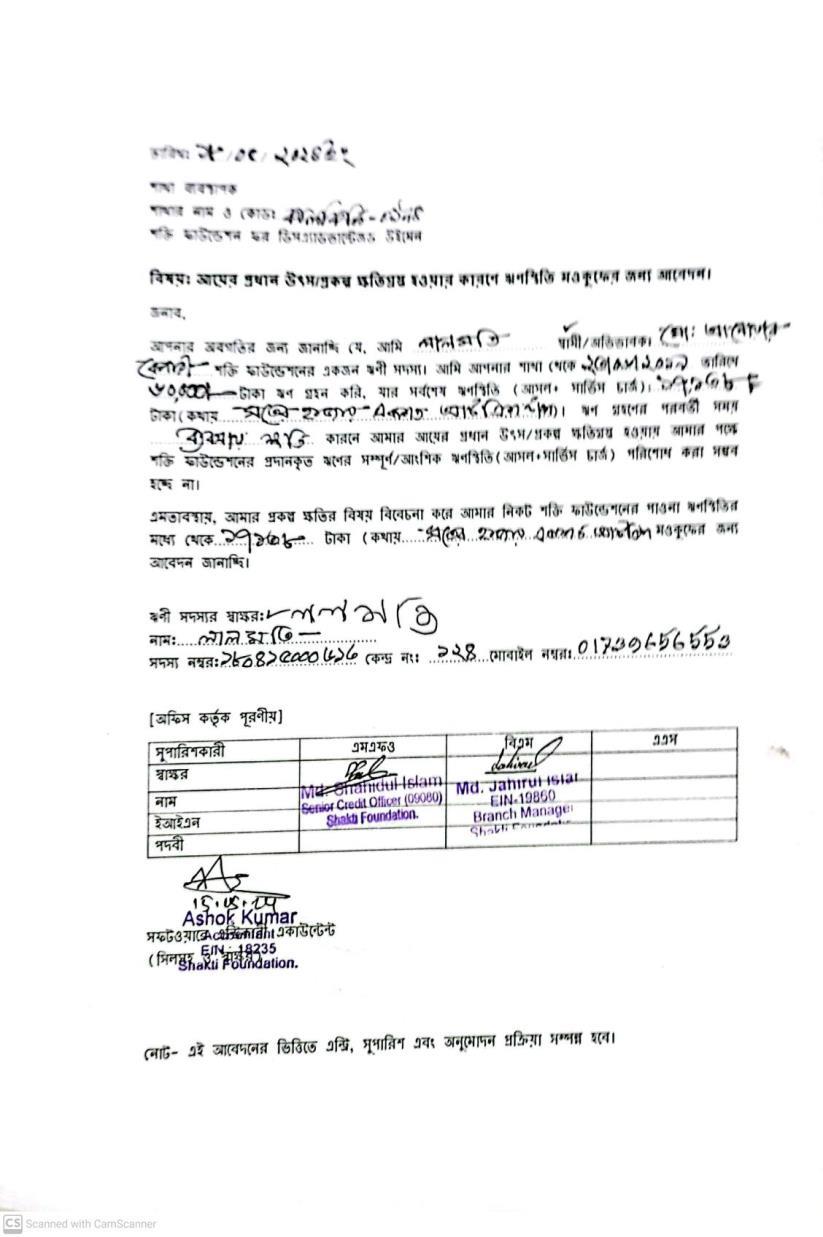 তারিখ:
শাখা ব্যবস্থাপক
শাখার নাম ও কোডঃ
শক্তি ফাউন্ডেশন ফর ডিসএ্যাডভান্টেজড উইমেন
বিষয়: আয়ের প্রধান উৎস/প্রকল্প ক্ষতিগ্রস্থ হওয়ার কারণে ঋণস্থিতি মওকুফের জন্য আবেদন।
জনাব,
আপনার অবগতির জন্য জানাচ্ছি যে, আমি লালমতি স্বামী/অভিভাবকঃ মোঃ
শক্তি ফাউন্ডেশনের একজন ঋণী সদস্য। আমি আপনার শাখা থেকে তারিখে
টাকা ঋণ গ্রহন করি, যার সর্বশেষ ঋণস্থিতি (আসল+ সার্ভিস চার্জ)ঃ ১৭১৬৮
টাকা(কথায় সতের হাজার একশত )। ঋণ গ্রহণের পরবর্তী সময়
ক্ষতি কারনে আমার আয়ের প্রধান উৎস/প্রকল্প ক্ষতিগ্রস্থ হওয়ায় আমার পক্ষে
শক্তি ফাউন্ডেশনের প্রদানকৃত ঋণের সম্পূর্ণ/আংশিক ঋণস্থিতি(আসল+সার্ভিস চার্জ) পরিশোধ করা সম্ভব
হচ্ছে না।
এমতাবস্থায়, আমার প্রকল্প ক্ষতির বিষয় বিবেচনা করে আমার নিকট শক্তি ফাউন্ডেশনের পাওনা ঋণস্থিতির
মধ্যে থেকে ১৭১৬৮ টাকা (কথায় সতের হাজার একশত মওকুফের জন্য
আবেদন জানাচ্ছি।
ঋণী সদস্যের স্বাক্ষর: লালমতি
নাম: লালমতি
সদস্য নম্বর: কেন্দ্র নং: ১২৪ মোবাইল নম্বর: 01739656553
[অফিস কর্তৃক পূরণীয়]
সুপারিশকারী এমএফও বিএম এএম
স্বাক্ষর
নাম Md. Shahidul Islam Md. Jahirul Islam
ইআইএন Senior Credit Officer (09080) EIN-19860
Shakti Foundation. Branch Manager
পদবী
15.05.24
Ashok Kumar
Accountant
সফটওয়্যারে এন্ট্রিকারী একাউন্টেন্ট
EIN: 18235
(সিলসহ স্বাক্ষর)
Shakti Foundation.
নোট- এই আবেদনের ভিত্তিতে এন্ট্রি, সুপারিশ এবং অনুমোদন প্রক্রিয়া সম্পন্ন হবে।
CS Scanned with CamScanner